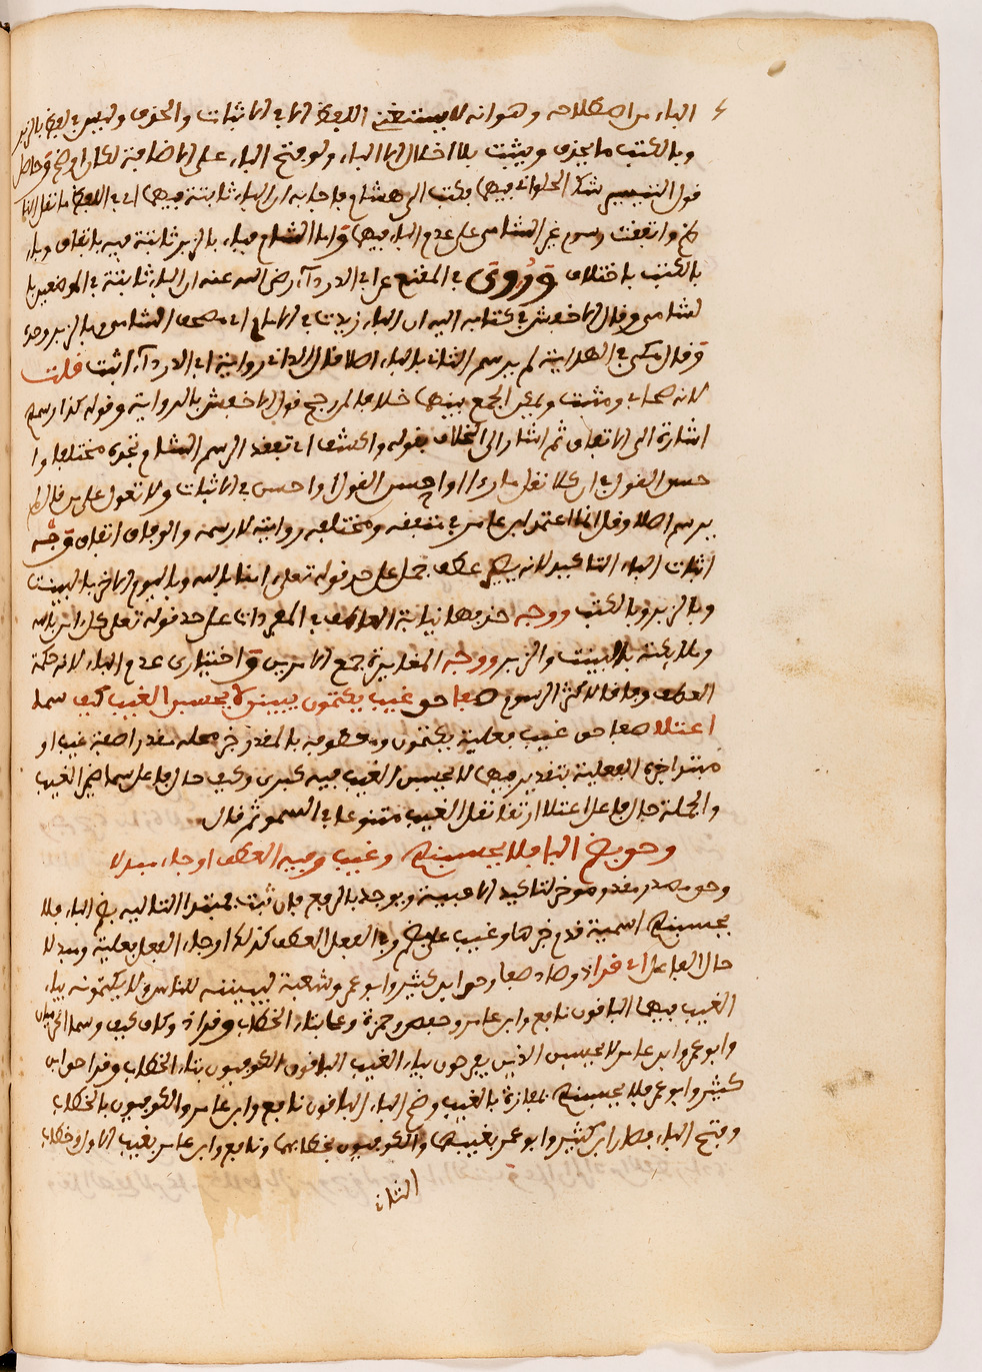 الباء من اصطلاحه وهو انه لا يستغني اللفظ الا في الاثبات والحذف وليس في لفظ بالزبر
وبالكتب ما يحذف ويثبت بلا اخلال الا الباء ولو فتح الباء على الاضافة لكان اوضح وحاصل
قول التيسير شك الحلواني فيها فكتب الى هشام فاجابه ان الباء ثابتة فيهما اي في اللفظ ما نقل
واتفقت رسوم غير الشامي على عدم الباء فيهما واما الشام فباء بالزبر ثابتة فيه باتفاق وباء
بالكتب باختلاف وروى في المقنع عن ابي الدرداء رضي الله عنه ان الباء ثابتة في الموضعين با
لشامي وقال الاخفش في كتابه اليه ان الباء زيدت في الامام اي مصحف الشامي وبالزبر وحده
وقال مكي في الهداية لم يرسم الثاني بالباء اصلا قال الداني رواية ابي الدرداء اثبت قلت
لانه صحابي ومثبت ويمكن الجمع بينهما خلافا لمن رجح قول الاخفش بالرواية وقوله كذا رسمهم
اشارة الى الاتفاق ثم اشار الى الخلاف بقوله واكشف اي تفقد الرسم الشام تجده مختلفا وا
حسن القول في ان كلا نقل ما راى او احسن القول او احسن في الاثبات ولا تعول على من قال لم
يرسم اصلا وقل انما اعتمد ابن عامر في متفقه ومختلفه روايته لا رسمه والوفاق اتفاق وجه
اثبات الباء التاكيد لانه عطف جمل على حد قوله تعلى امنا بالله وباليوم الاخر بالبينت
وبالزبر وبالكتب ووجه حذفها نيابة العاطف في المفردات على حد قوله تعلى كل امن بالله
وملائكته بالبينت والزبر ووجه المغايرة جمع الامرين واختياري عدم الباء لانه حكمة
العطف وما قاله اكثر الرسوم صفا حق غيب يكتمون يبينن لا يحسبن الغيب كيف سما
اعتلا صفا حق غيب فعلية يكتمون ومعطوفه بالمقدر خبر محله مقدر اضفة غيب او
مبتدا خبره الفعلية بتقدير فيها لا يحسبن الغيب فيه كبرى وكيف حال فاعل سما ضمير الغيب
والجملة حال فاعل اعتلا ارتفا نقل الغيب متنوعا في السمو ثم قال
وحق بضم البا فلا يحسبنهم وغيب وفيه العطف او جاء مبدلا
وحق مصدر مقدر موخر لتاكيد الاغيبية ويوجد بالرفع فان ثبت فمبتدا التاليه بضم الباء فلا
يحسبنهم اسمية قدم خبرها وغيب على ضم وفي الفعل العطف كذلك او جاء الفعل فعلية ومبدلا
حال الفاعل اي قرا ذو صاد صفا وحق ابن كثير وابو عمرو وشعبة ليبيننه للناس ولا يكتمونه بياء
الغيب فيهما الباقون نافع وابن عامر وحفص وحمزة وعلي بتاء الخطاب وقرا ذو كاف كيف وسما الحرميان
وابو عمرو وابن عامر لا يحسبن الذين يفرحون بياء الغيب الباقون الكوفيون بتاء الخطاب وقرا حق ابن
كثير وابو عمرو فلا يحسبنهم بمفازة بالغيب وضم الباء الباقون نافع وابن عامر والكوفيون بالخطاب
وفتح الباء فصار ابن كثير وابو عمرو بغيبهما والكوفيون بخطابهما ونافع وابن عامر بغيب الاول وخطاب
الثاني